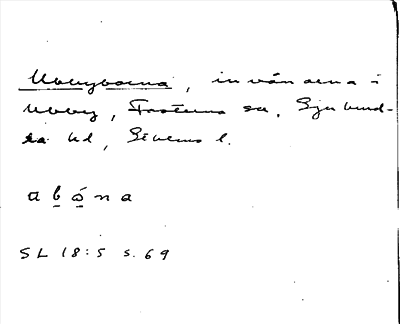 Ubbyborna, invånarna i
Ubby, Frötuna sn, Sjuhund-
ra hd, Stockholms l.
a b ó n a
SL 18:5 s. 69